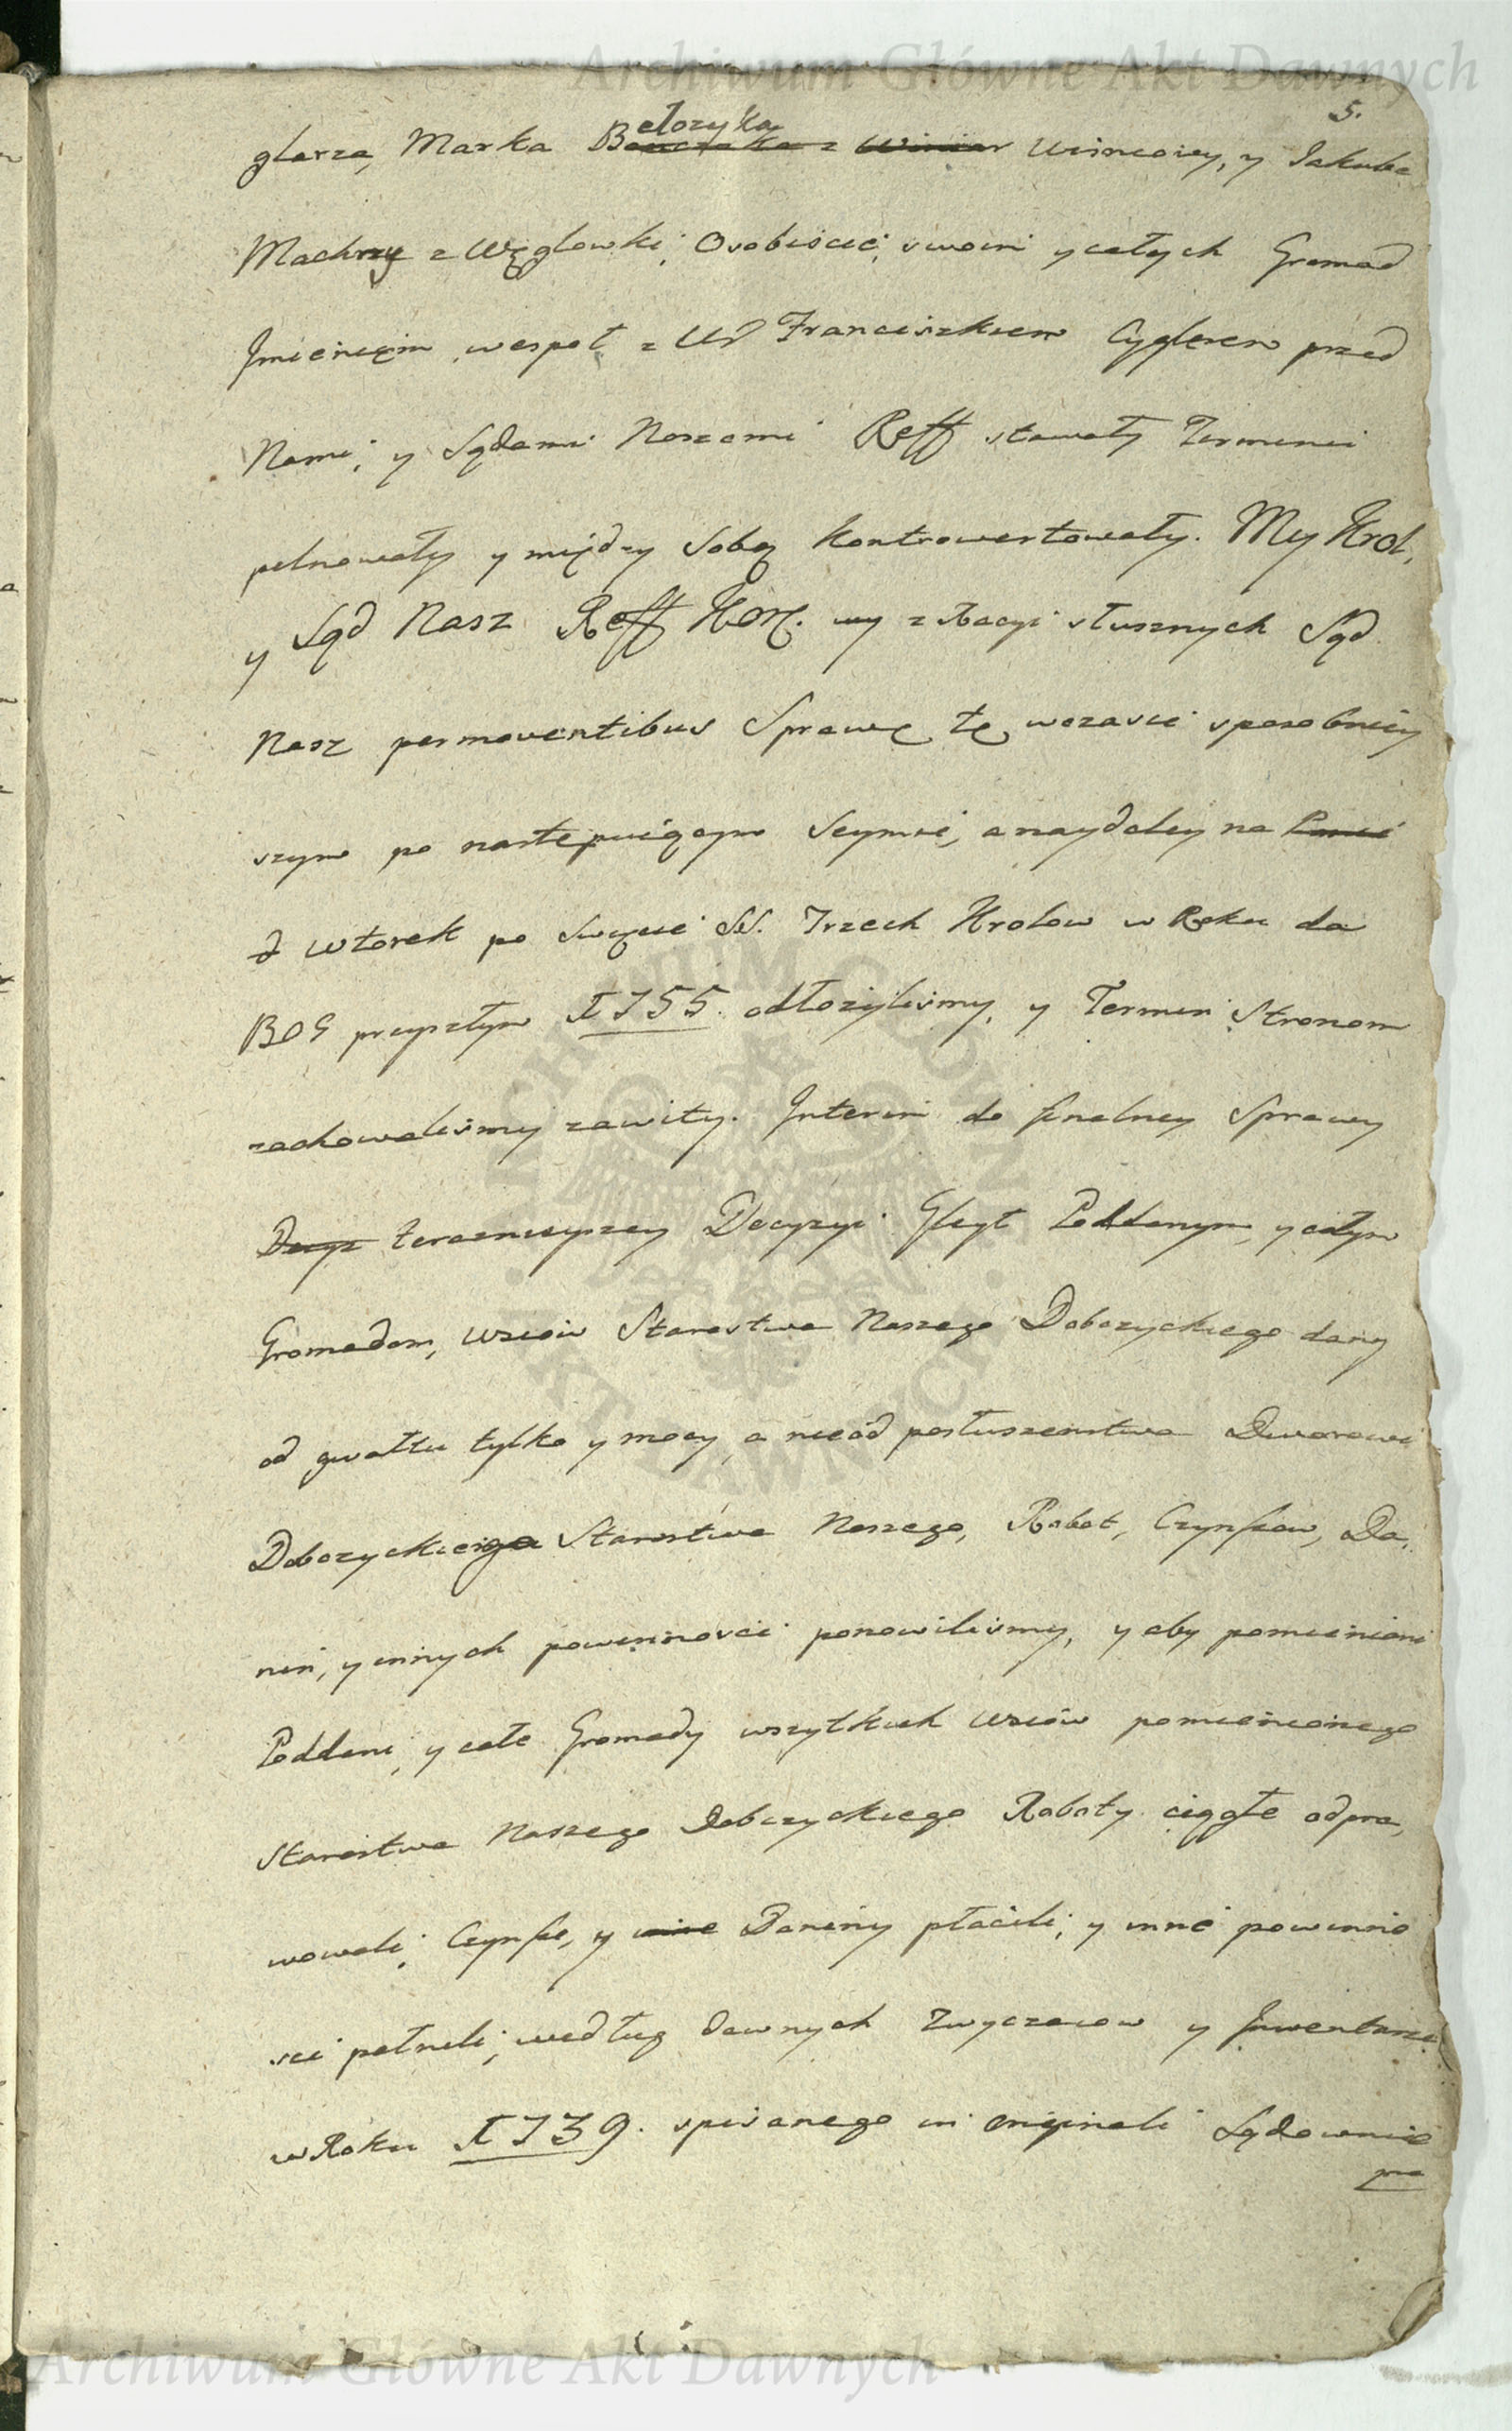 Archiwum Główne Akt Dawnych
5.
glarza, Marka Betozyka z Wiśniowy, y Jakuba
Machny z Węglowki, Osobiście, swoim y całych Gromad
Jmieniem wespoł z Ur Franciszkiem Cyglerem przed
Nami, y Sądami Naszemi Reff stawały Termin
pilnowały y między Sobą kontrowertowały. My Krol,
y Sąd Nasz Reff Kor. my z Racyi słusznych Sąd
Nasz permoventibus Sprawę tę wczasie sposobniey
szym po następuiącym Seymie, a naydaley na
d Wtorek po Swięcie SS. Trzech Krolow w Roku da
BOG przyszłym 1755. odłożyliśmy, y Termin Stronom
zachowaliśmy zawity. Interim do finalney Sprawy
teraznieyszey Decyzyi Gleyt Poddanym, y całym
Gromadom, Wsiow Starostwa Naszego Dobczyckiego dany
od gwałtu tylko y mocy, a nieod posłuszenstwa Dworowi
Dobczyckiego Starostwa Naszego, Robot, Czynszow, Da,
nin, y innych powinnosci ponowiliśmy, y aby pomienieni
Poddani, y całe Gromady wszytkich Wsiów pomienionego
Starostwa Naszego Dobczyckiego Roboty ciągłe odpra,
wowali, Czynsze, y Daniny płacili, y inne powinno
sci pełnili, według dawnych Zwyczaiow y Jnwentarza
w Roku 1739. spisanego in originali Sądownie
pro
Archiwum Główne Akt Dawnych